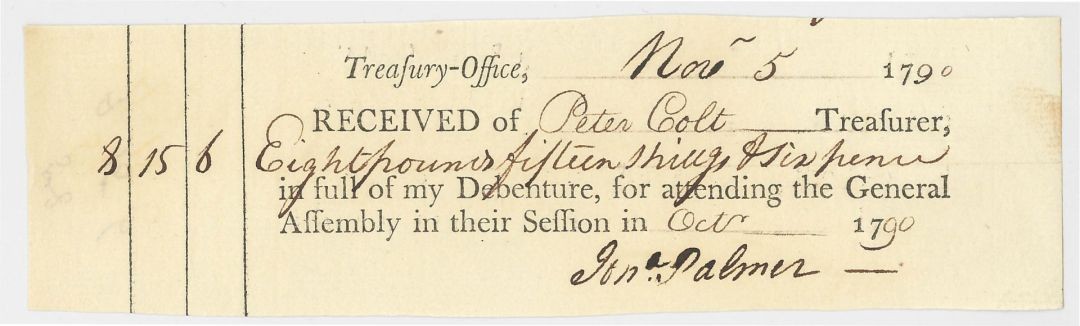 Treaſury-Office, Nov 5 1790
RECEIVED of Peter Colt Treaſurer,
8 15 6 Eight pounds fifteen shillgs & six pence
in full of my Debenture, for attending the General
Aſſembly in their Seſſion in Octr 1790
Jona. Palmer